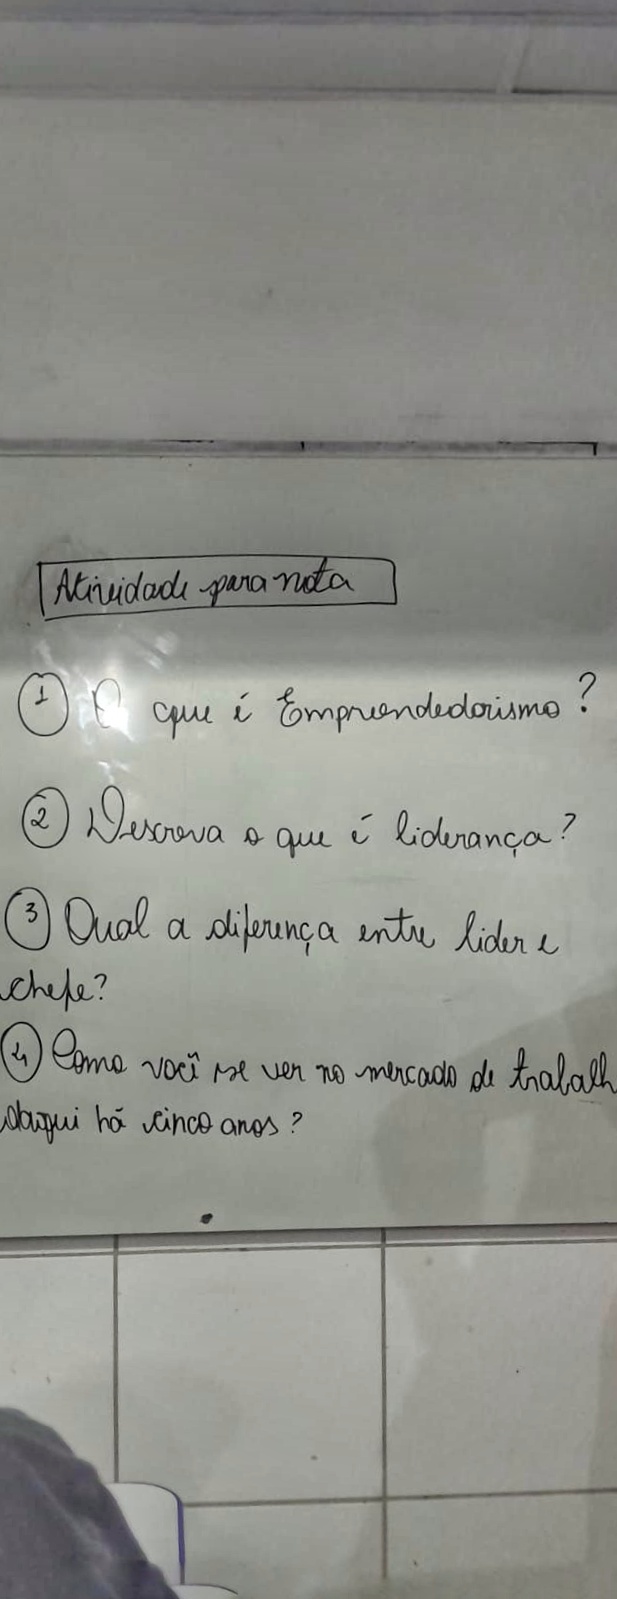 Atividade para nota
1 O que é Empreendedorismo?
2 Descreva o que é liderança?
3 Qual a diferença entre lider e
chefe?
4 Como você se ver no mercado de trabalh
daqui há cinco anos?